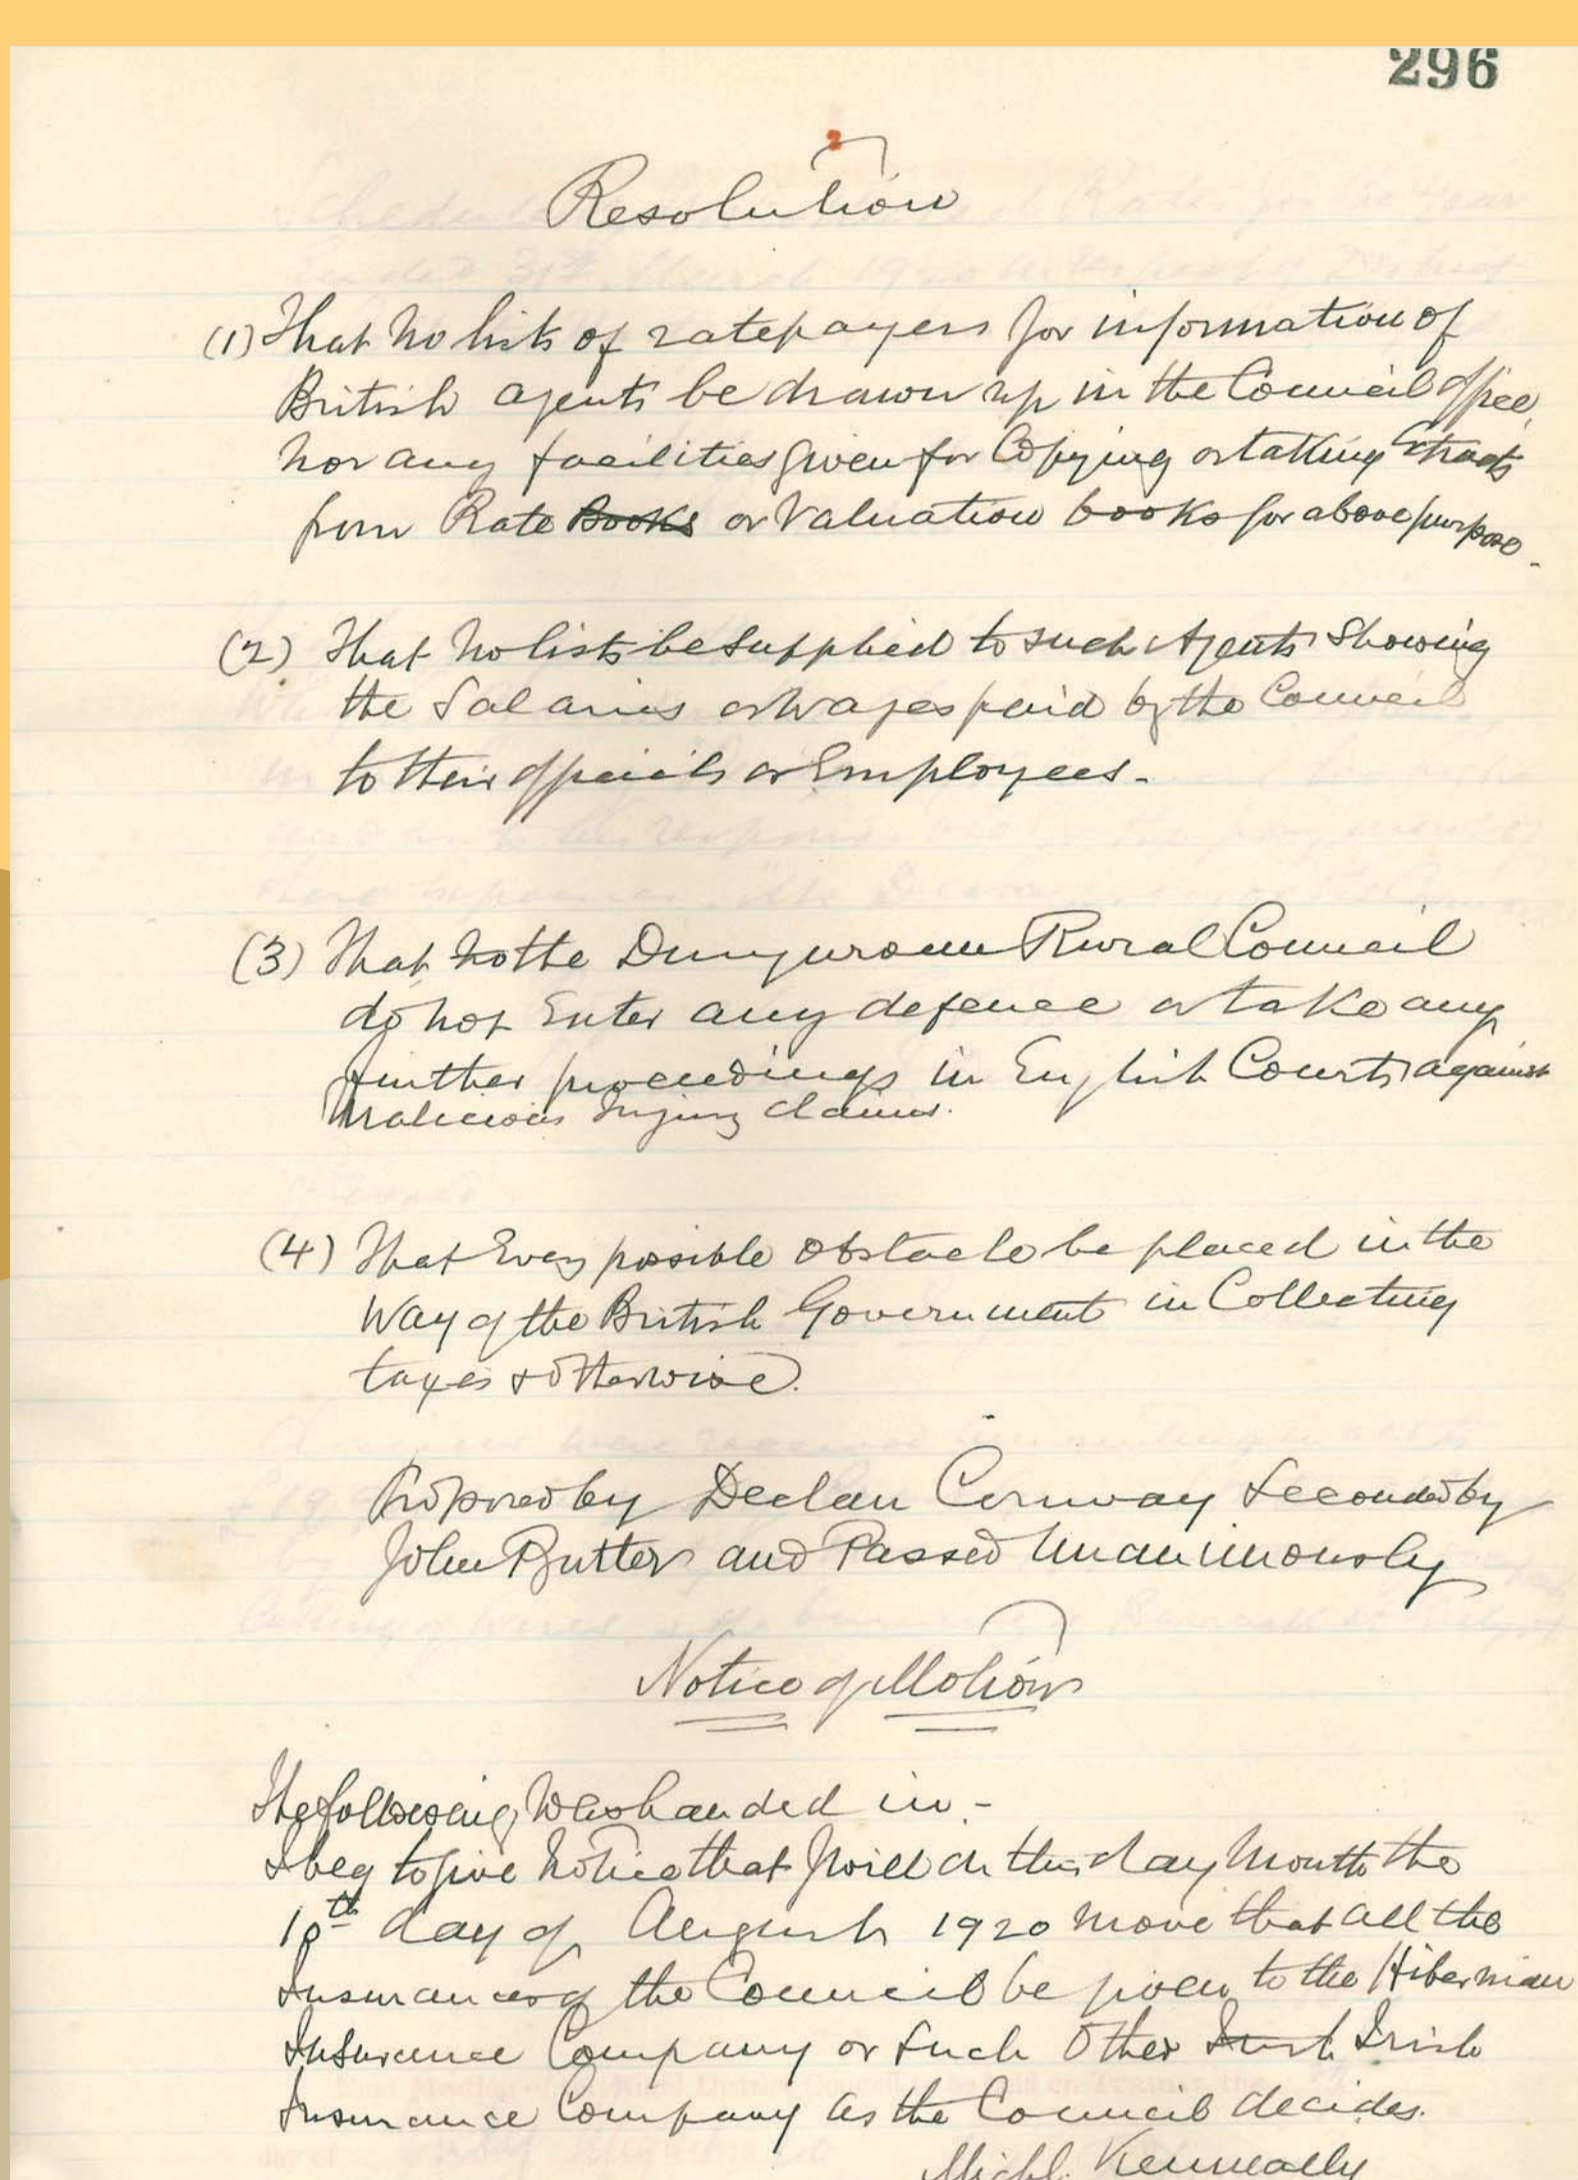 296
Resolution
(1) That no lists of ratepayers for information of
British agents be drawn up in the Council office,
nor any facilities given for Copying or taking Extracts
from Rate Books or Valuation books for above purpose.
(2) That no lists be supplied to such Agents showing
the Salaries or wages paid by the Council
to their officials or Employees.
(3) That the Dungarvan Rural Council
do not Enter any defence or take any
further proceedings in English Courts against
Malicious Injury Claims.
(4) That Every possible obstacle be placed in the
way of the British Government in Collecting
taxes & otherwise.
Proposed by Declan Conway Seconded by
John Butler and Passed Unanimously
Notice of Motion
The following was handed in -
I beg to give notice that I will on this day month the
10th day of August 1920 move that all the
Insurances of the Council be given to the Hibernian
Insurance Company or such other Irish Irish
Insurance Company as the Council decides.
Michl. Kenneally